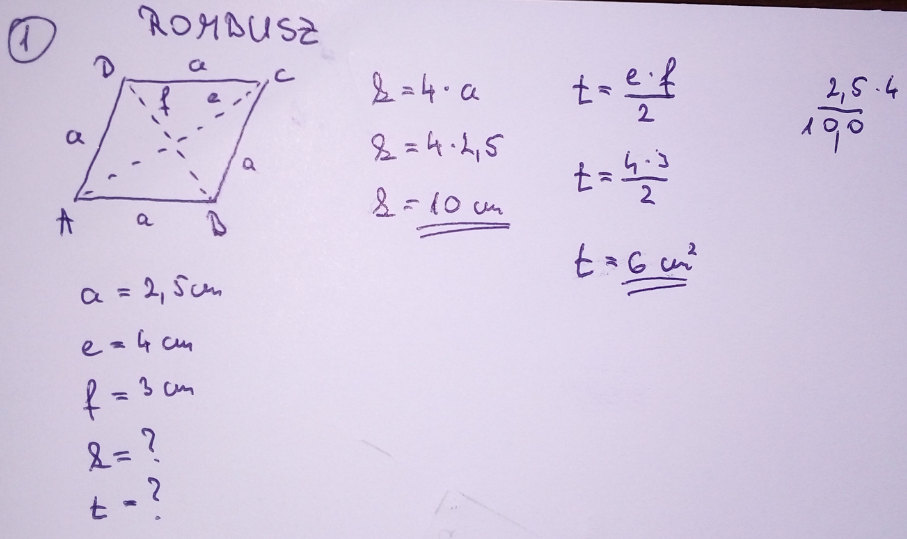 1
ROMBUSZ
D a C
f e
a a
A a B
a = 2,5 cm
e = 4 cm
f = 3 cm
k = ?
t = ?
k = 4 · a
k = 4 · 2,5
k = 10 cm
t = e · f / 2
t = 4 · 3 / 2
t = 6 cm²
2,5 · 4
10,0